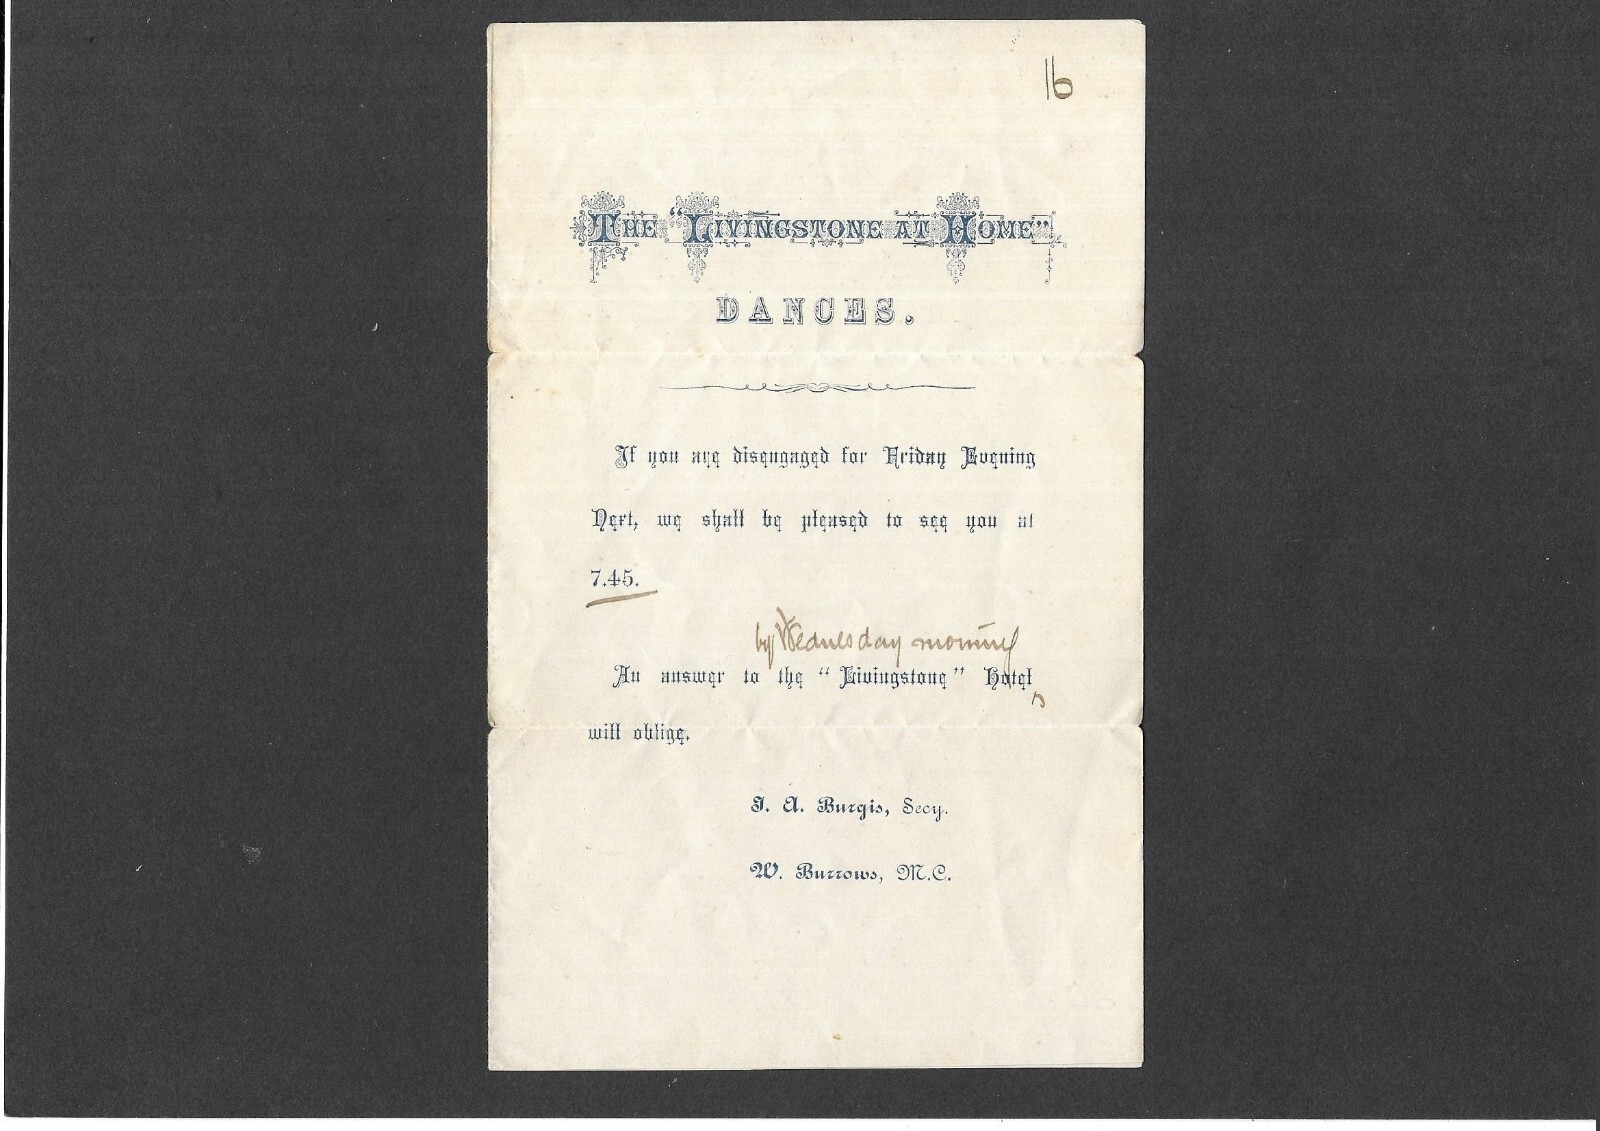 16
The "Livingstone at Home"
DANCES.
If you are disengaged for Friday Evening
Next, we shall be pleased to see you at
7.45.
by Wednesday morning
An answer to the "Livingstone" Hotel
will oblige.
J. A. Burgis, Secy.
W. Burrows, M.C.